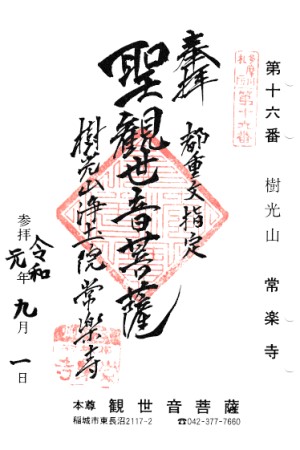 第十六番 樹光山 常楽寺
多摩川
第十六番
奉拝
都重文指定
聖観世音菩薩
樹光山浄土院常楽寺
参拝 令和元年九月一日
本尊 観世音菩薩
稲城市東長沼2117-2 ☎042-377-7660